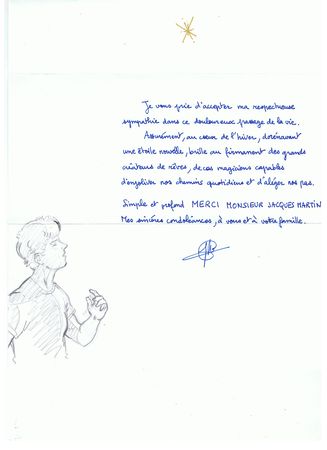 Je vous prie d'accepter ma respectueuse
sympathie dans ce douloureux passage de la vie.
Assurément, au coeur de l'hiver, dorénavant
une étoile nouvelle, brille au firmament des grands
créateurs de rêves, de ces magiciens capables
d'enjoliver nos chemins quotidiens et d'alléger nos pas.
Simple et profond MERCI MONSIEUR JACQUES MARTIN
Mes sincères condoléances, à vous et à votre famille.